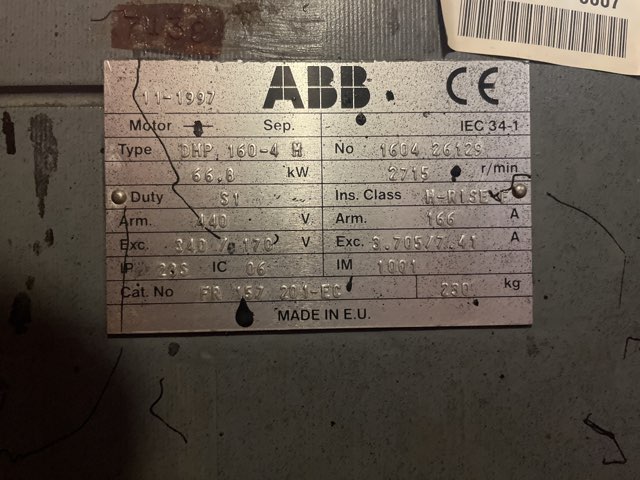 713C
ABB CE
11-1997
Motor Sep. IEC 34-1
Type DMP 160-4 M No 1604 26129
66.8 kW 2715 r/min
Duty S1 Ins. Class H-RISE F
Arm. 440 V Arm. 166 A
Exc. 340 / 170 V Exc. 3.705/7.41 A
IP 23S IC 06 IM 1001
Cat. No FR 157 201-EC 230 kg
MADE IN E.U.